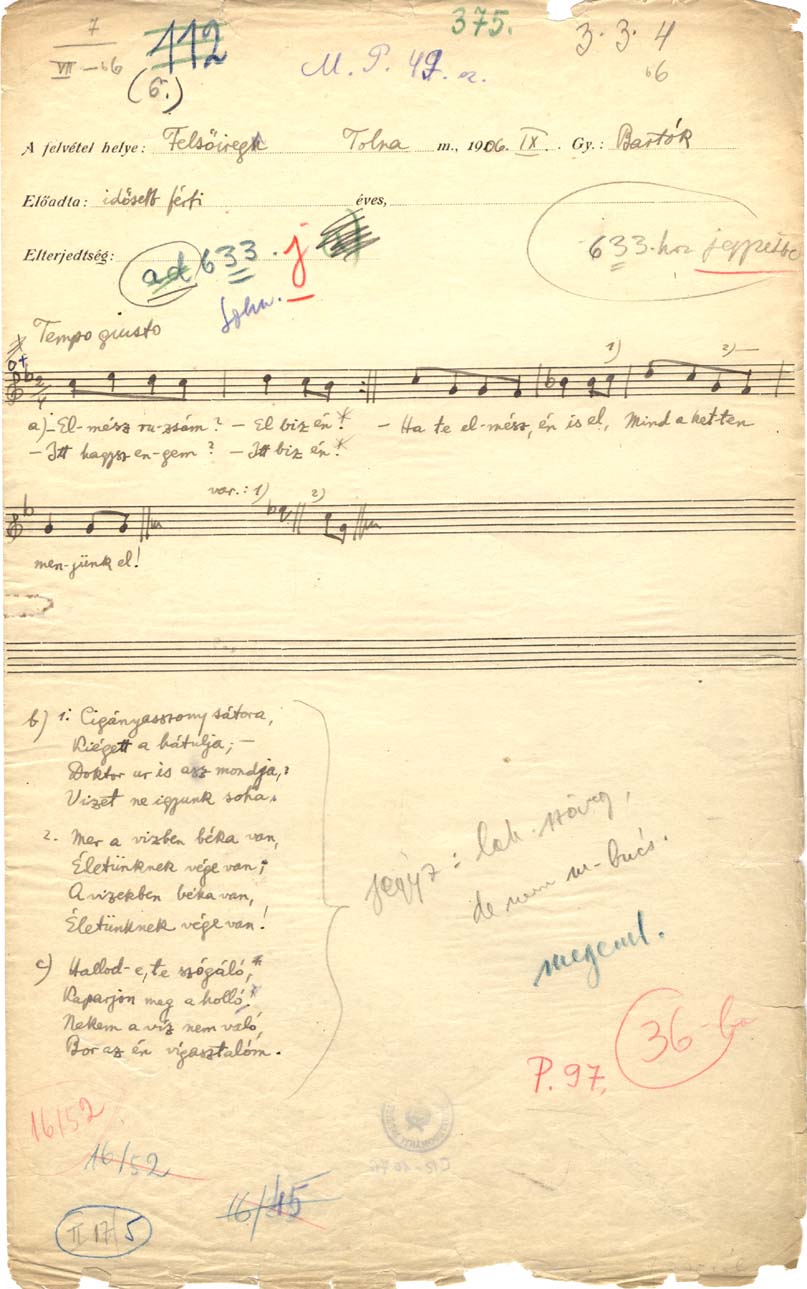 7
VII —06
112
(6.)
M. P. 49. a.
375.
3 · 3 · 4
b6
A felvétel helye: Felsőiregh Tolna m., 1906. IX. Gy.: Bartók
Előadta: idősebb férfi éves,
Elterjedtség: ad 633. j
633-hoz jegyzetbe
Tempo giusto
a) – El-mész ru-zsám? – El biz én!* – Ha te el-mész, én is el, Mind a ket-ten
– Itt hagysz en-gem? – Itt biz én!*
var.: 1) 2)
men-jünk el!
b) 1. Cigányasszony sátora,
Kiégett a hátulja; –
Doktor ur is asz mondja,
Vizet ne igyunk soha.
2. Mer a vizben béka van,
Életünknek vége van;
A vizekben béka van,
Életünknek vége van!
jegyz: lak. szöveg,
de nem
megeml.
c) Hallod-e, te szógáló,*
Kaparjon meg a holló!
Nekem a víz nem való,
Bor az én vigasztalóm.
36-ba
P. 97.
16/52
16/52
16/45
II 17/5